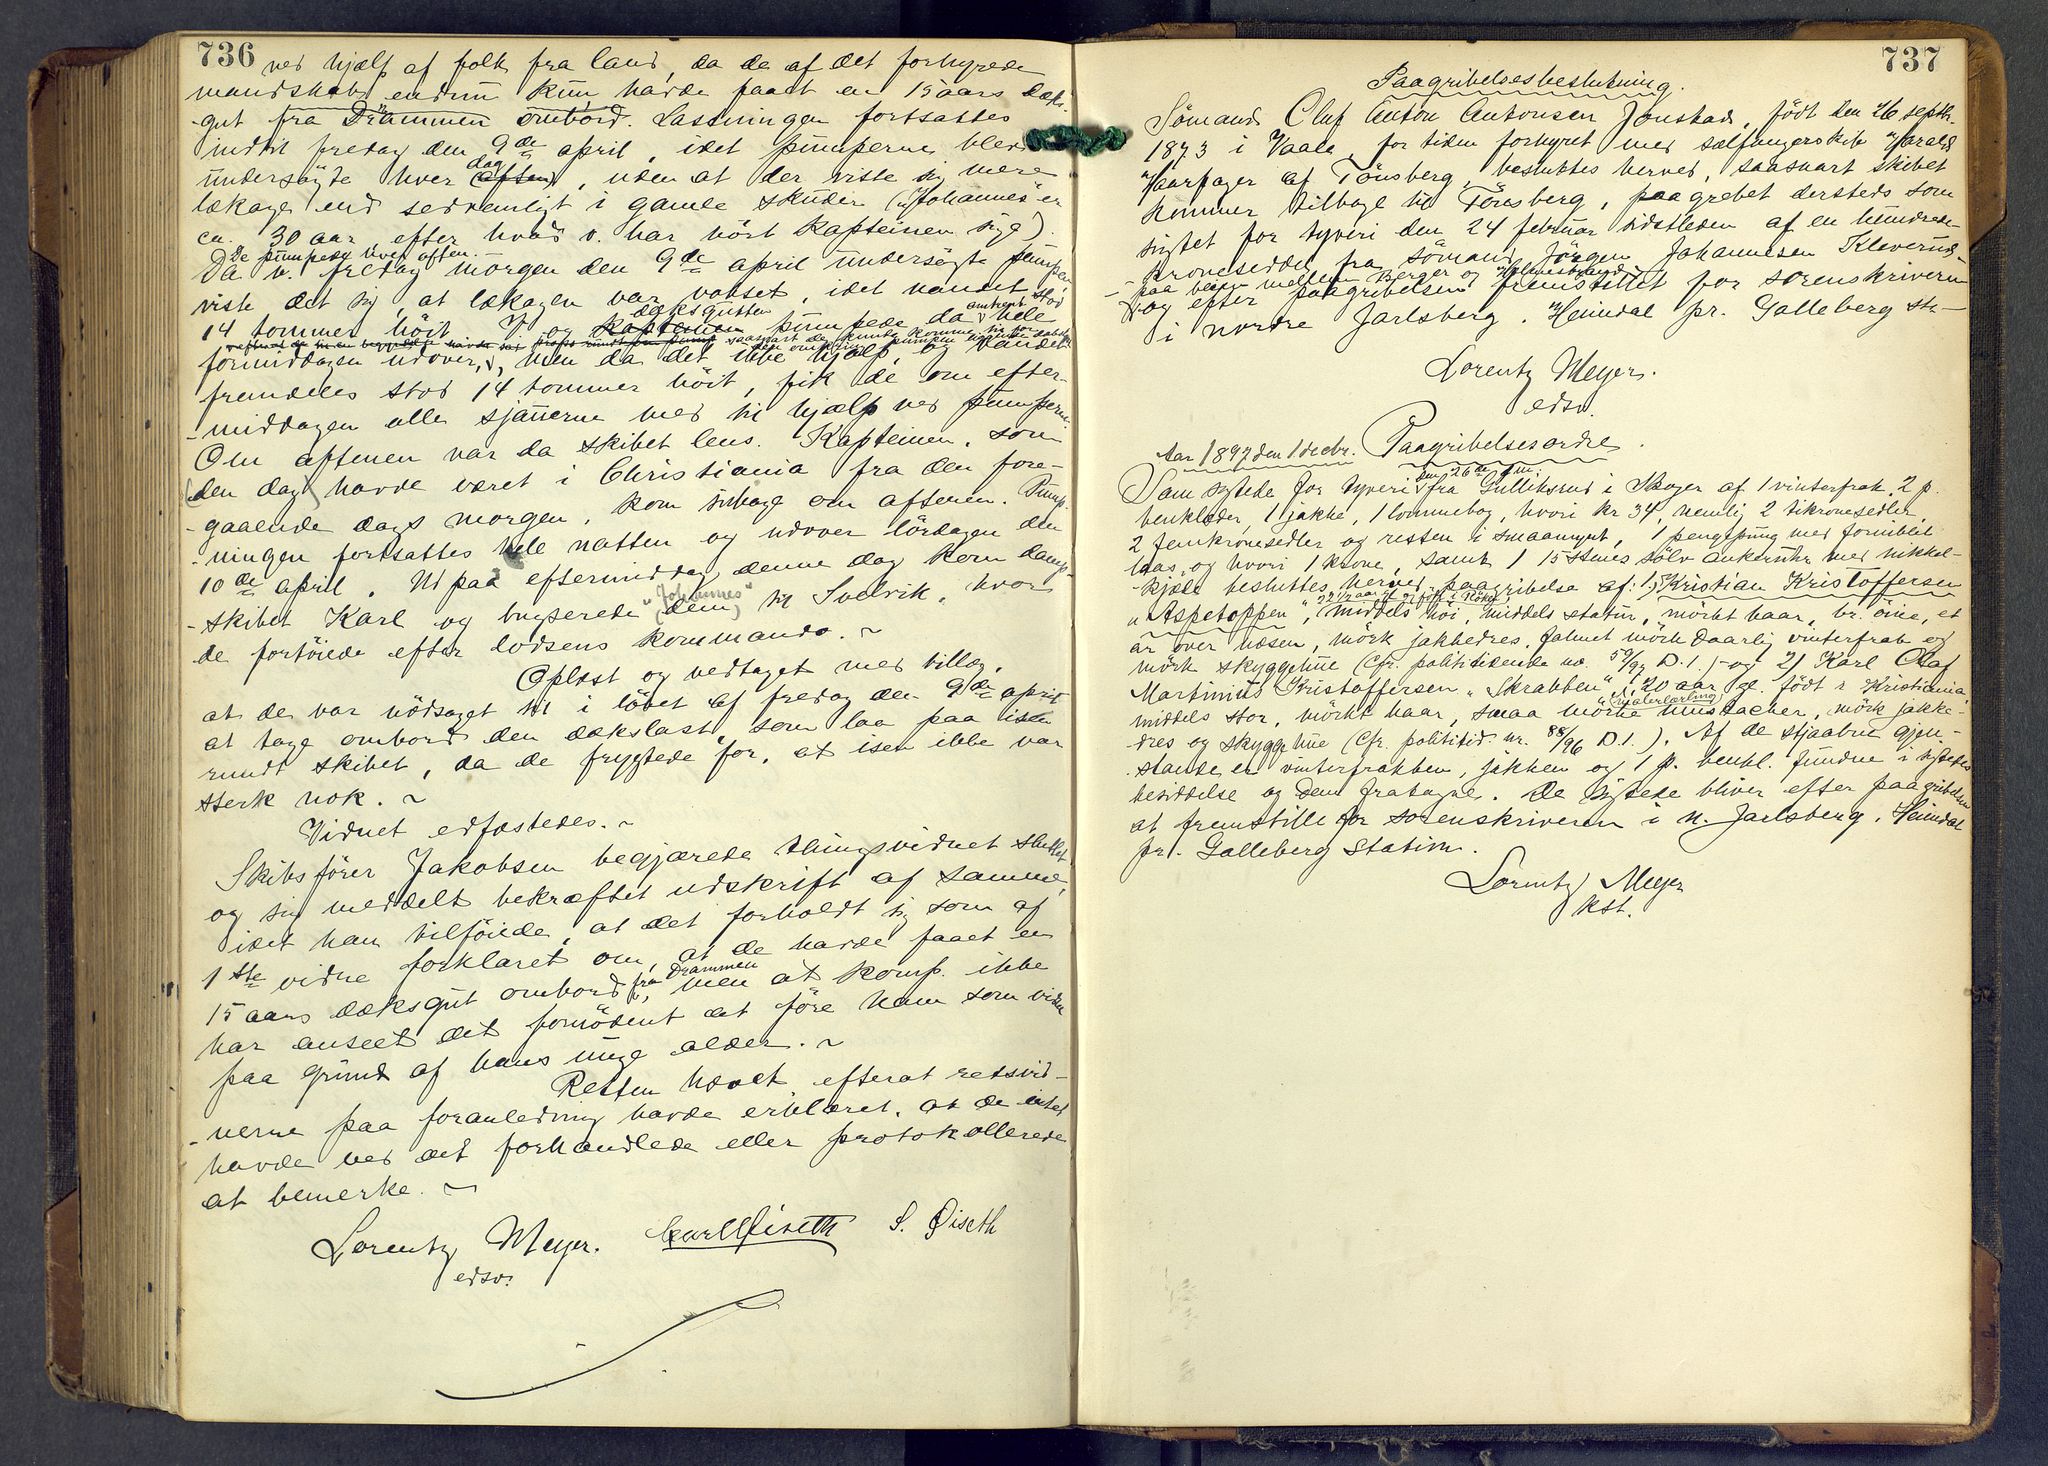 736
ved hjælp af folk fra land, da de af det forhyrede
mandskab endnu kun havde faaet en 15 aars dæks-
gut fra Drammen ombord. Lastningen fortsattes
indtil fredag den 9de april, idet pumperne blev
undersøgte hver dag, uden at der viste sig mere
lækage end sedvanligt i gamle skuder ("Johannes" er
ca. 30 aar, efter hvad v. har hört kapteinen sige).
De pumpede hver aften.
Da v. fredag morgen den 9de april undersøgte pumpen
viste det sig, at lækagen var vokset, idet vandet stod
14 tommer höit. V. og dæksgutten pumpede da omtrent hele
formiddagen udover, men da det ikke hjalp, og vandet
fremdeles stod 14 tommer höit, fik de om efter-
-middagen alle sjauerne med til hjælp ved pumperne.
Om aftenen var da skibet lens. Kapteinen, som
(den dag) havde været i Christiania fra den fore-
-gaaende dags morgen, kom tilbage om aftenen. Pump-
-ningen fortsattes hele natten og udover lördagen den
10de april. Ud paa eftermiddag denne dag kom damp-
-skibet Karl og bugserede "Johannes" (dem) til Svelvik, hvor
de fortöiede efter lodsens kommando. ~
Oplæst og vedtaget med tillæg,
at de var nödsaget til i löbet af fredag den 9de april
at tage ombord den dækslast, som laa paa isen
rundt skibet, da de frygtede for, at isen ikke var
sterk nok. ~
Vidnet edfæstedes. ~
Skibsförer Jakobsen begjærede thingsvidnet sluttet
og sig meddelt bekræftet udskrift af samme,
idet han tilföiede, at det forholdt sig som af
1ste vidne forklaret om, at de havde faaet en
15 aars dæksgut ombord fra Drammen, men at komp. ikke
har anseet det fornödent at före ham som vidne
paa grund af hans unge alder. ~
Retten hævet efterat retsvid-
-nerne paa foranledning havde erklæret, at de intet
havde ved det forhandlede eller protokollerede
at bemerke. ~
Lorentz Meyer. Carl Öiseth S. Öiseth
edsv.
737
Paagribelsesbeslutning.
Sömand Oluf Anton Antonsen Jonstad, födt den 26 septbr.
1873 i Vaale, for tiden forhyret med sælfangerskib "Harald
Haarfager" af Tönsberg, besluttes herved, saasnart skibet
kommer tilbage til Tönsberg, paagrebet dersteds som
sigtet for tyveri den 24 februar sidstleden af en hundrede-
kroneseddel fra sömand Jörgen Johannesen Kleverud
paa veien mellem Berger og Holmestrand
og efter paagribelsen fremstillet for sorenskriveren
i nordre Jarlsberg, Heimdal pr. Galleberg st.
Lorentz Meyer.
edsv.
Aar 1897 den 1 decbr. Paagribelsesordre.
Som sigtede for tyveri den 26de f.m. fra Gulliksrud i Skoger af 1 vinterfrak, 2 p.
benklæder, 1 jakke, 1 lommebog, hvori kr 34, nemlig 2 tikronesedler
2 femkronesedler og resten i smaamynt, 1 pengepung med fornikl.
laas og hvori 1 krone, samt 1 15 stens sölv ankeruhr med nikkel-
kjæde besluttes herved paagribelse af: 1) Kristian Kristoffersen
"Aspetoppen", 22 1/2 aar gl. og födt i Röken, middels höi, middels statur, mörkt haar, br. öine, et
ar over næsen, mörk jakkedres, falmet mörk daarlig vinterfrak og
mörk skyggehue (cfr. politidende no. 59/97 D.1.) - og 2) Karl Olaf
Martinius Kristoffersen "Skrabben", 20 aar gl. födt i Kristiania,
middels stor, mörkt haar, smaa mörke mustacher, mörk jakke-
dres og skyggehue (cfr. politid. nr. 88/96 D.1.). Af de stjaalne gjen-
stande er vinterfrakken, jakken og 1 p. benkl. fundne i sigtedes
besiddelse og dem fratagne. De sigtede bliver efter paagribelsen
at fremstille for sorenskriveren i n. Jarlsberg, Heimdal
pr. Galleberg Station.
Lorentz Meyer
kst.